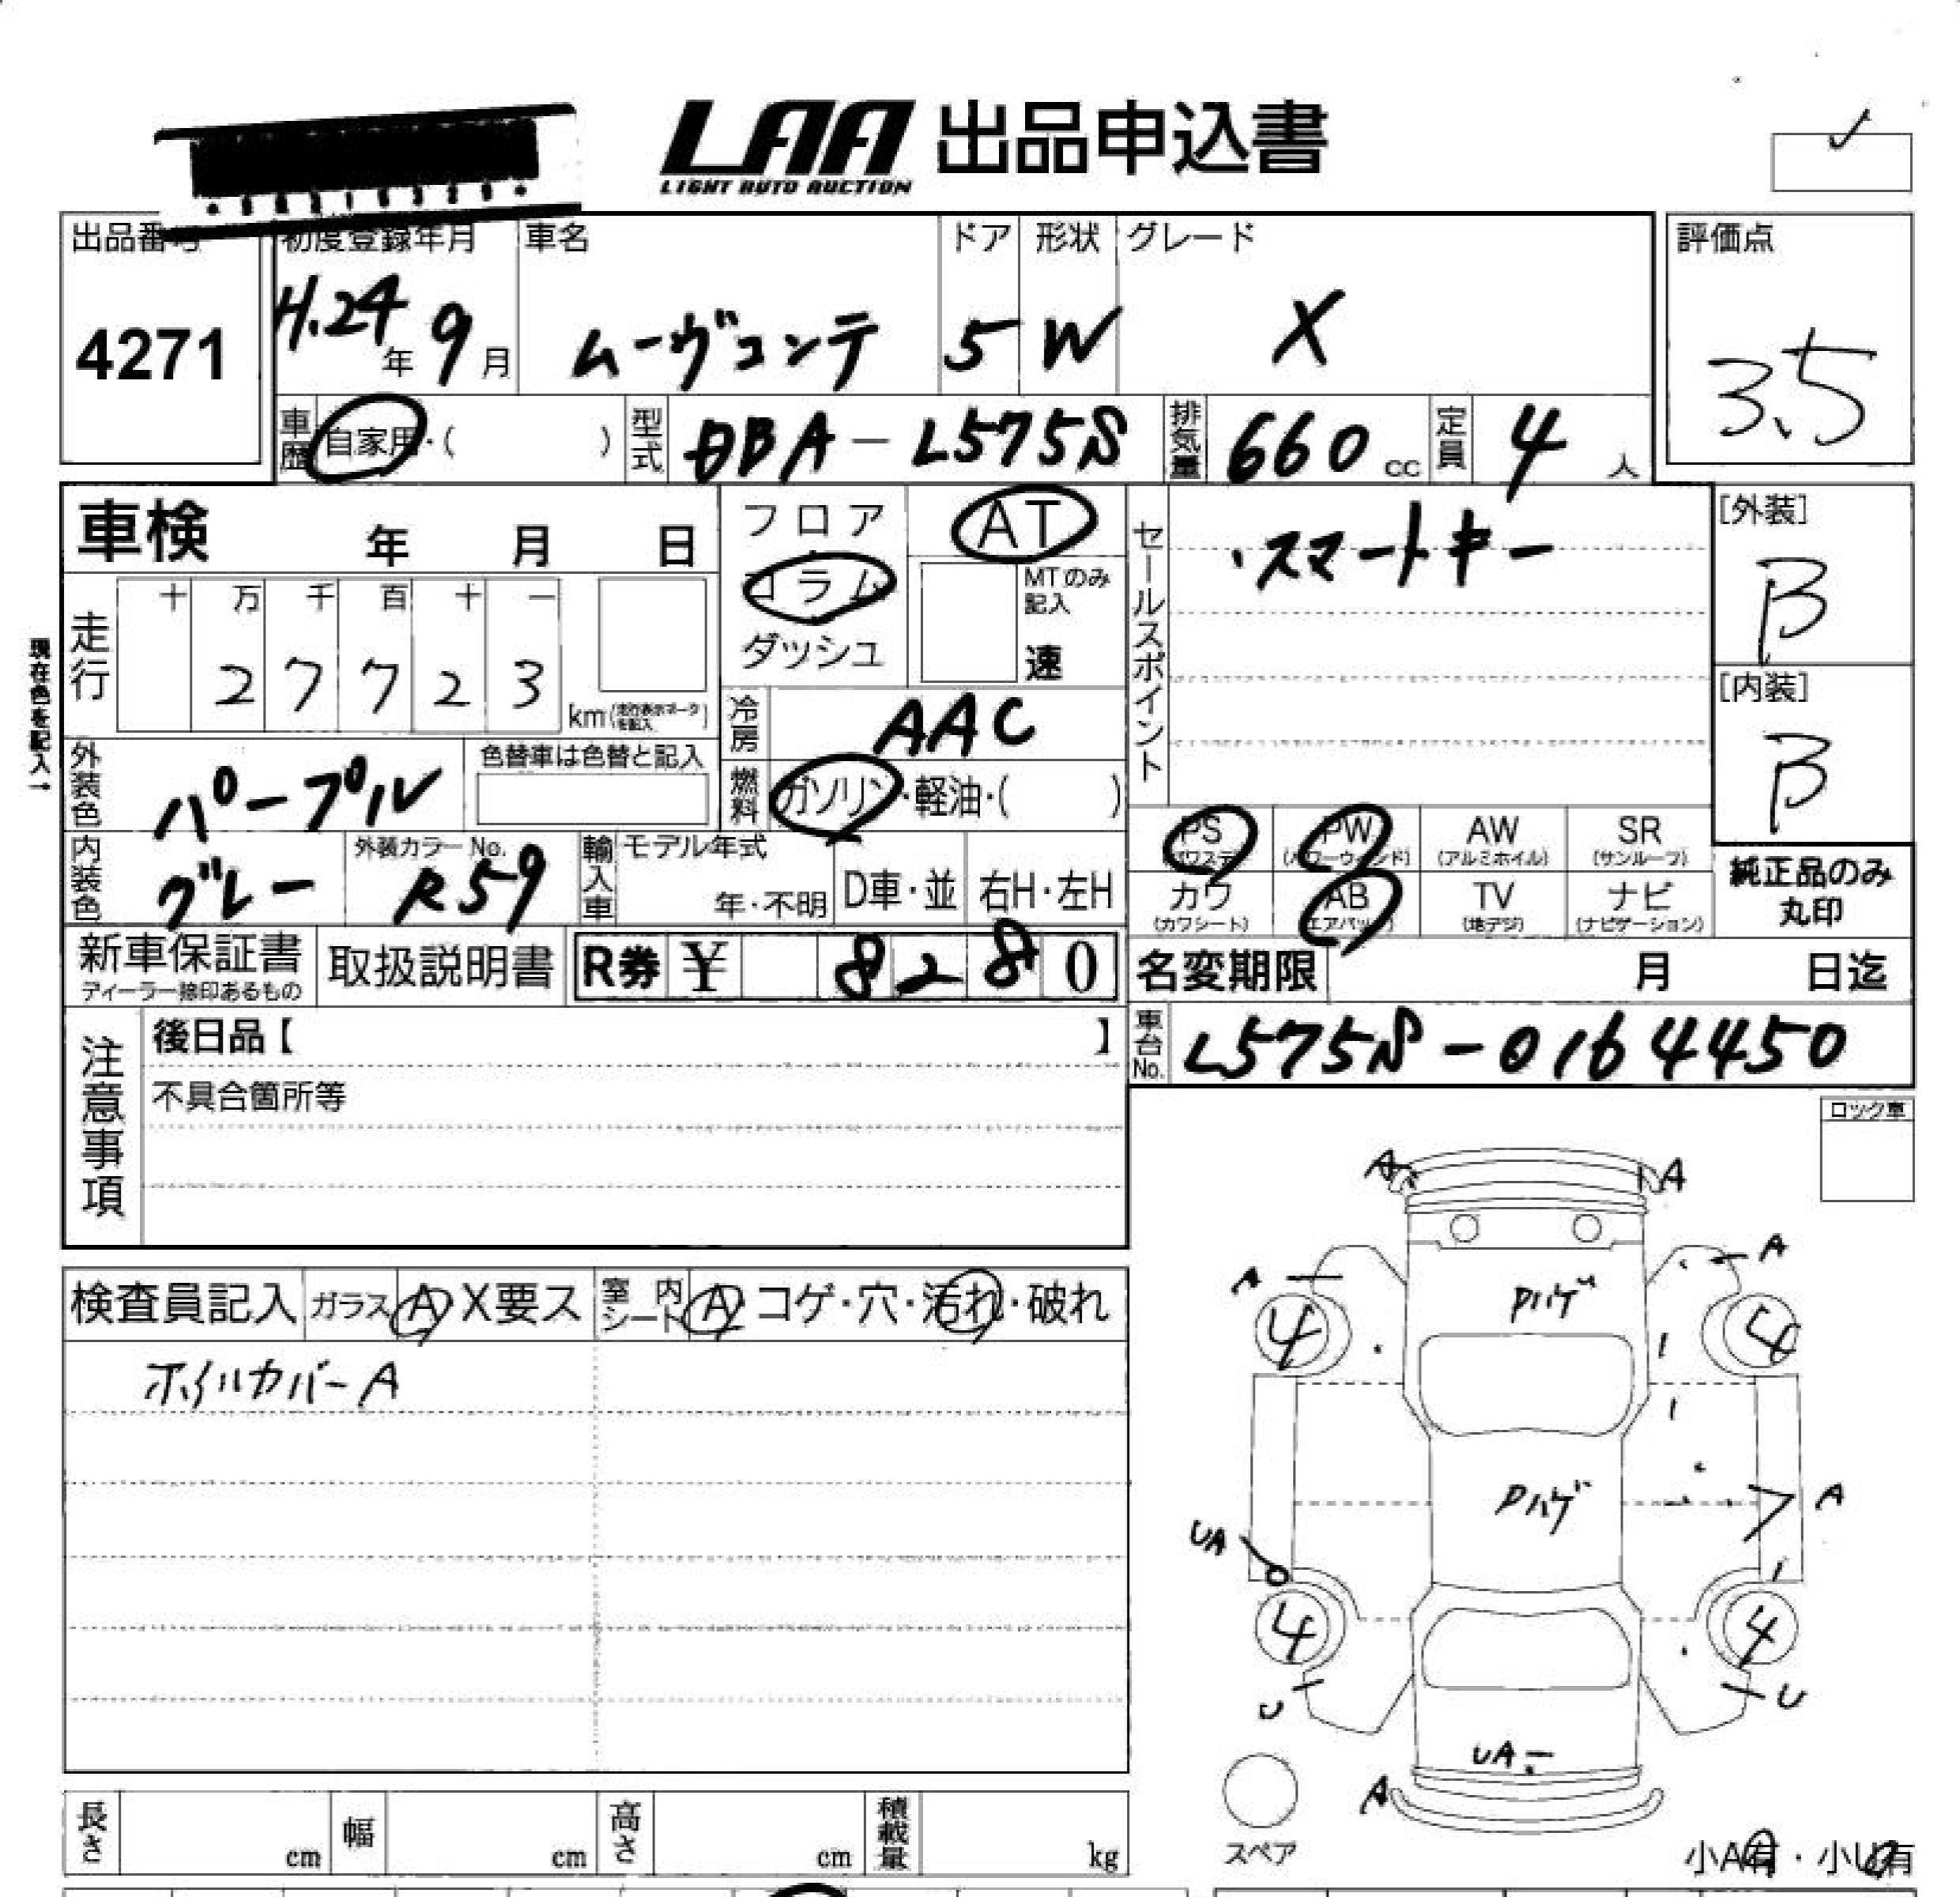 LAA 出品申込書
LIGHT AUTO AUCTION
出品番号
4271
初度登録年月
H.24年 9月
車名
ムーヴコンテ
ドア
5
形状
W
グレード
X
評価点
3.5
車歴 自家用・( )
型式 DBA-L575S
排気量 660 cc
定員 4 人
車検 年 月 日
走行
十 万 千 百 十 一
2 7 7 2 3
km(走行表示マークを記入)
現在色を記入→
フロア
コラム
ダッシュ
AT
MTのみ記入
速
冷房 AAC
燃料 ガソリン・軽油・( )
セールスポイント
・スマートキー
[外装]
B
[内装]
B
外装色 パープル
色替車は色替と記入
内装色 グレー
外装カラーNo. R59
輸入車 モデル年式
年・不明 D車・並 右H・左H
PS (パワステ) PW (パワーウィンド) AW (アルミホイル) SR (サンルーフ)
カワ (カワシート) AB (エアバッグ) TV (地デジ) ナビ (ナビゲーション)
純正品のみ
丸印
新車保証書
ディーラー捺印あるもの
取扱説明書
R券 ¥ 8 2 8 0
名変期限 月 日迄
車台No. L575S-0164450
注意事項
後日品【 】
不具合箇所等
ロック車
検査員記入 ガラス A X要ス 室内シート A コゲ・穴・汚れ・破れ
ホイルカバーA
A A
A A
4 Pハゲ 4
Pハゲ A
UA
4 4
U U
UA
A
スペア
小A有・小U有
長さ cm 幅 cm 高さ cm 積載量 kg